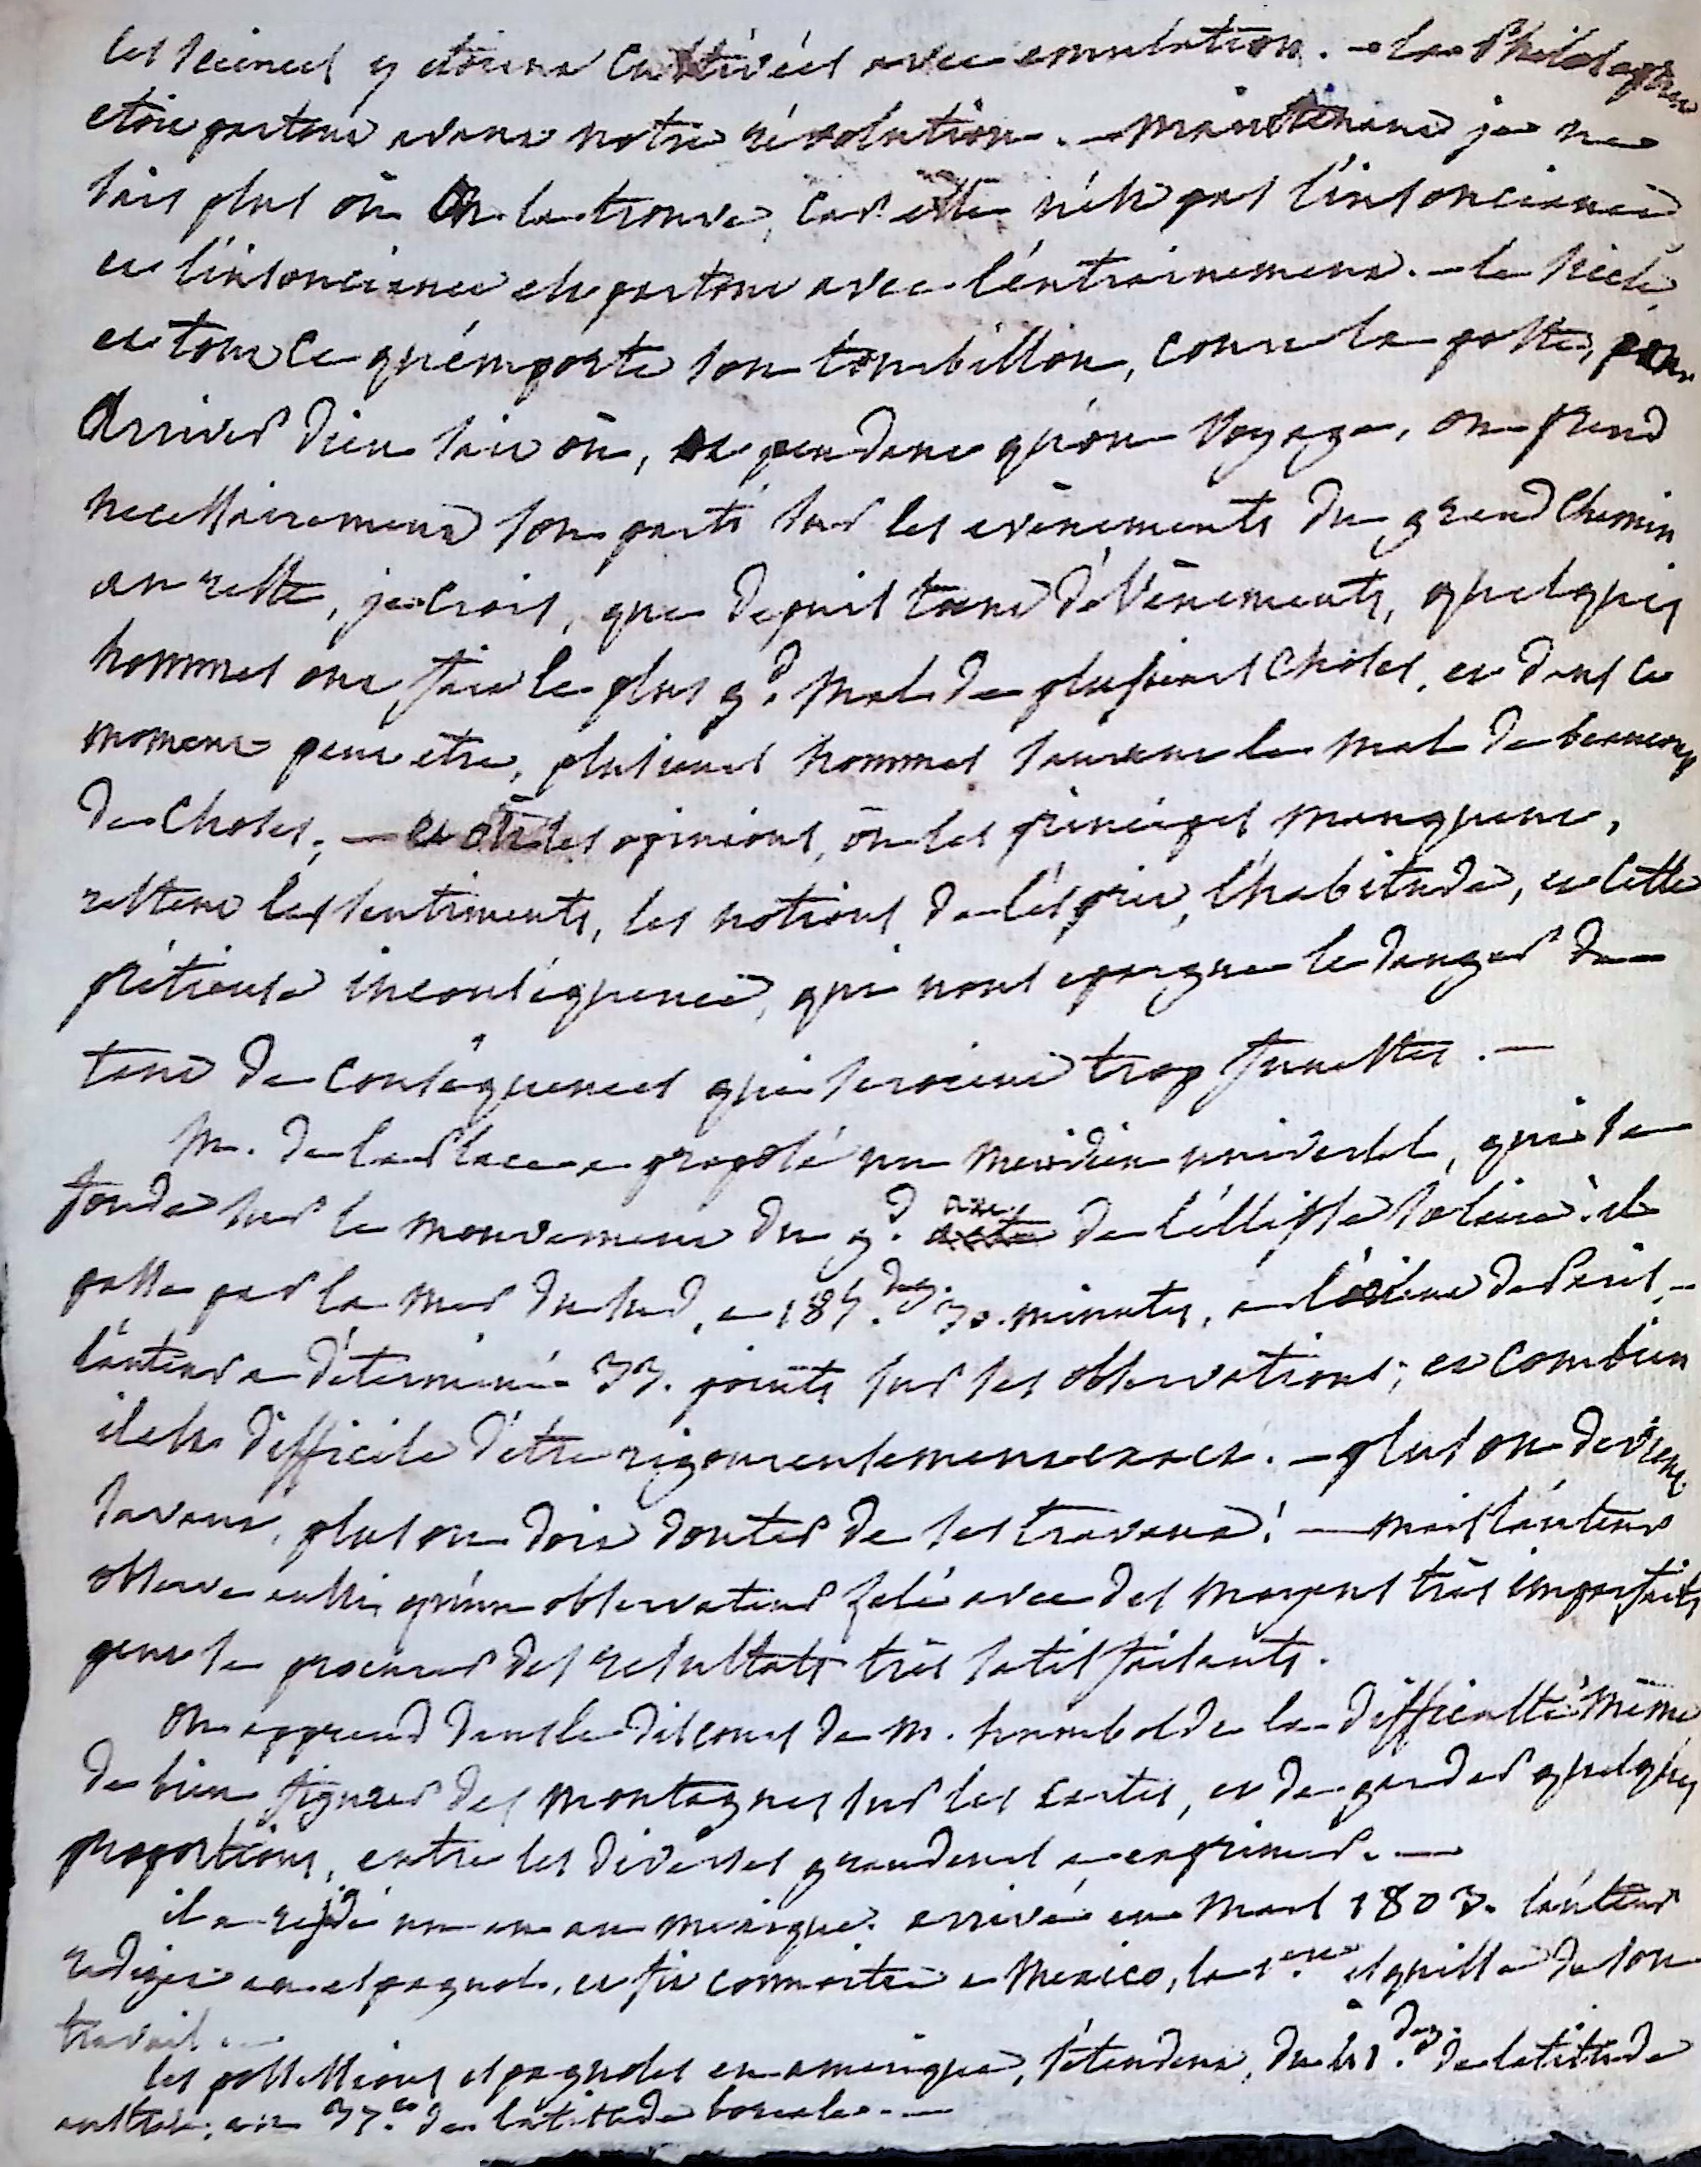 les sciences y étoient cultivées avec emulation. - la Philosophie
etoit partout avant notre révolution. - maintenant je ne
sais plus où on la trouve, car elle n'est pas l'insouciance
et l'insouciance est partout avec l'entrainement. - le siecle
et tout ce qu'emporte son tourbillon, court la poste, pour
arriver dieu sait où, et pendant qu'on voyage, on prend
necessairement son parti sur les evènements du grand chemin
au reste, je crois, que depuis tant d'évènements, quelques
hommes ont fait le plus gd. mal de plusieurs choses, et dans ce
moment peut etre, plusieurs hommes sauvent le mal de beaucoup
de choses; - et où les opinions, où les principes manquent,
restent les sentiments, les notions de l'esprit, l'habitude, et cette
prétieuse inconséquence, qui nous epargne le danger de
tant de conséquences qui seroient trop funestes. -
M. de la Place a proposé un meridien universel, qui se
fonde sur le mouvement du gd. axe de l'éllipse solaire. il
passe par la mer du sud, a 185. deg. 30. minutes, a l'orient de Paris, -
l'auteur a déterminé 33. points sur ses observations; et combien
il est difficile d'etre rigoureusement exact. - plus on devient
savant, plus on doit douter de ses travaux! - mais l'auteur
observe aussi, qu'un observateur zelé avec des moyens très imparfaits
peut se procurer des resultats très satisfaisants.
On apprend dans le discours de M. humbold de la difficulté même
de bien figurer des montagnes sur les cartes, et de garder quelques
proportions, entre les diverses grandeurs a exprimer. -
il a resídé un an au mexique. arrivé en Mars 1803. l'auteur
redigea en espagnol, et fit connoitre a Mexico, la 1ere. esquisse de son
travail. -
les possessions espagnoles en amerique, s'étendent, du 41. deg. de latitude
australe, au 37.e de latitude boreale. -